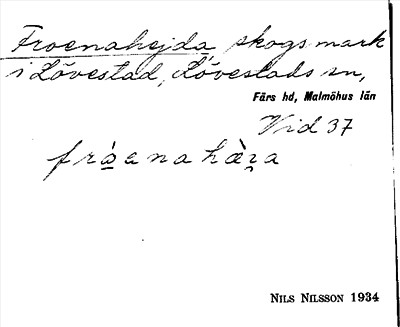 Froenahejda, skogsmark
i Lövestad, Lövestads sn,
Färs hd, Malmöhus län
Vid 37
NILS NILSSON 1934